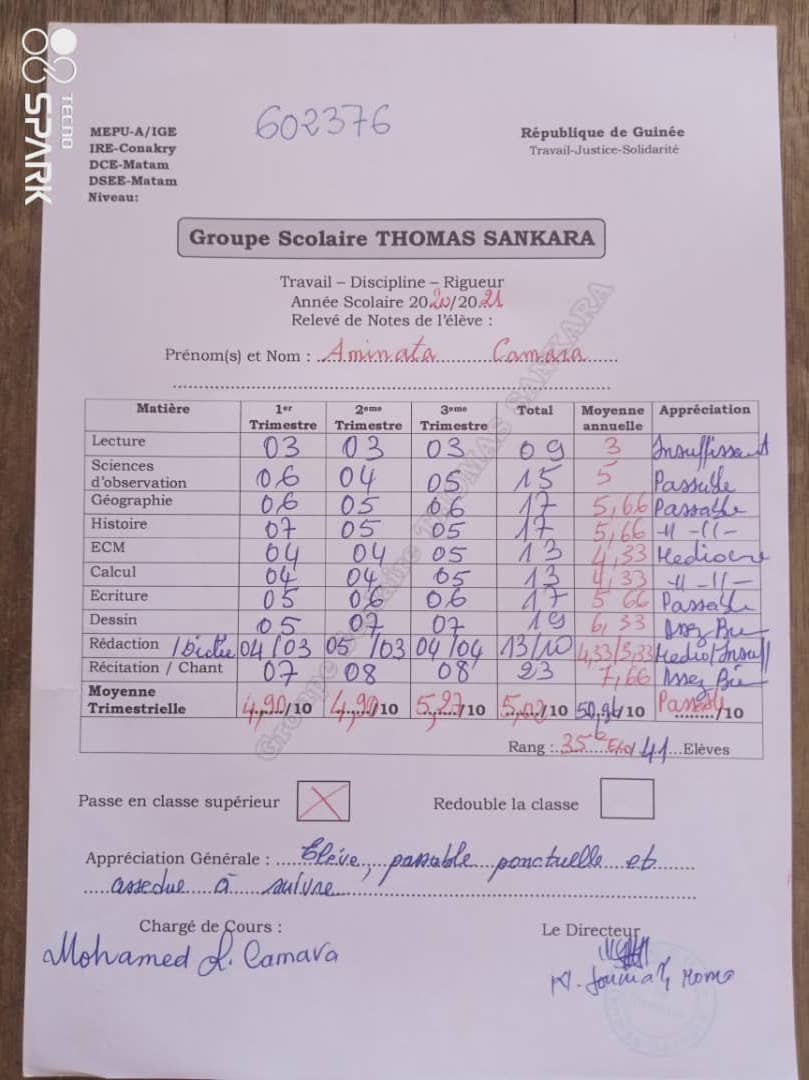 SPARK
TECNO
602376
MEPU-A/IGE
IRE-Conakry
DCE-Matam
DSEE-Matam
Niveau:
République de Guinée
Travail-Justice-Solidarité
Groupe Scolaire THOMAS SANKARA
Travail – Discipline – Rigueur
Année Scolaire 2020/2021
Relevé de Notes de l'élève :
Prénom(s) et Nom : Aminata Camara
Matière 1er Trimestre 2eme Trimestre 3eme Trimestre Total Moyenne annuelle Appréciation
Lecture 03 03 03 09 3 Insuffisant
Sciences d'observation 06 04 05 15 5 Passable
Géographie 06 05 06 17 5,66 Passable
Histoire 07 05 05 17 5,66 -11-11-
ECM 04 04 05 13 4,33 Mediocre
Calcul 04 04 05 13 4,33 -11-11-
Ecriture 05 06 06 17 5 66 Passable
Dessin 05 07 07 19 6,33 Assez Bien
Rédaction /Dictée 04/03 05/03 04/04 13/10 4,33/3,33 Medio/Insuff
Récitation / Chant 07 08 08 23 7,66 Assez Bien
Moyenne Trimestrielle 4,90/10 4,90/10 5,27/10 5,02/10 50,96/10 Passable/10
Rang : 35e 41 Elèves
Passe en classe supérieur
Redouble la classe
Appréciation Générale : Elève, passable ponctuelle et
assedue à suivre
Chargé de Cours :
Le Directeur
Mohamed L. Camara
Groupe Scolaire THOMAS SANKARA